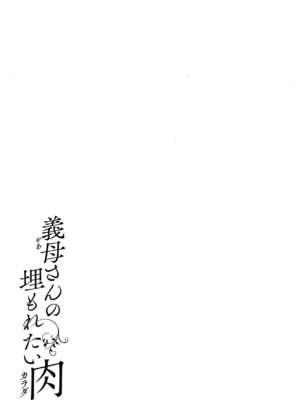 義母さんの
埋もれたい肉
があ
カラダ